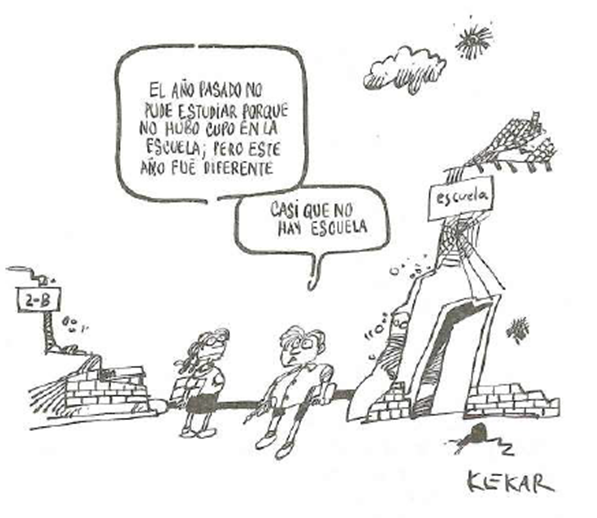 EL AÑO PASADO NO
PUDE ESTUDIAR PORQUE
NO HUBO CUPO EN LA
ESCUELA; PERO ESTE
AÑO FUÉ DIFERENTE
CASI QUE NO
HAY ESCUELA
escuela
2-B
KEKAR